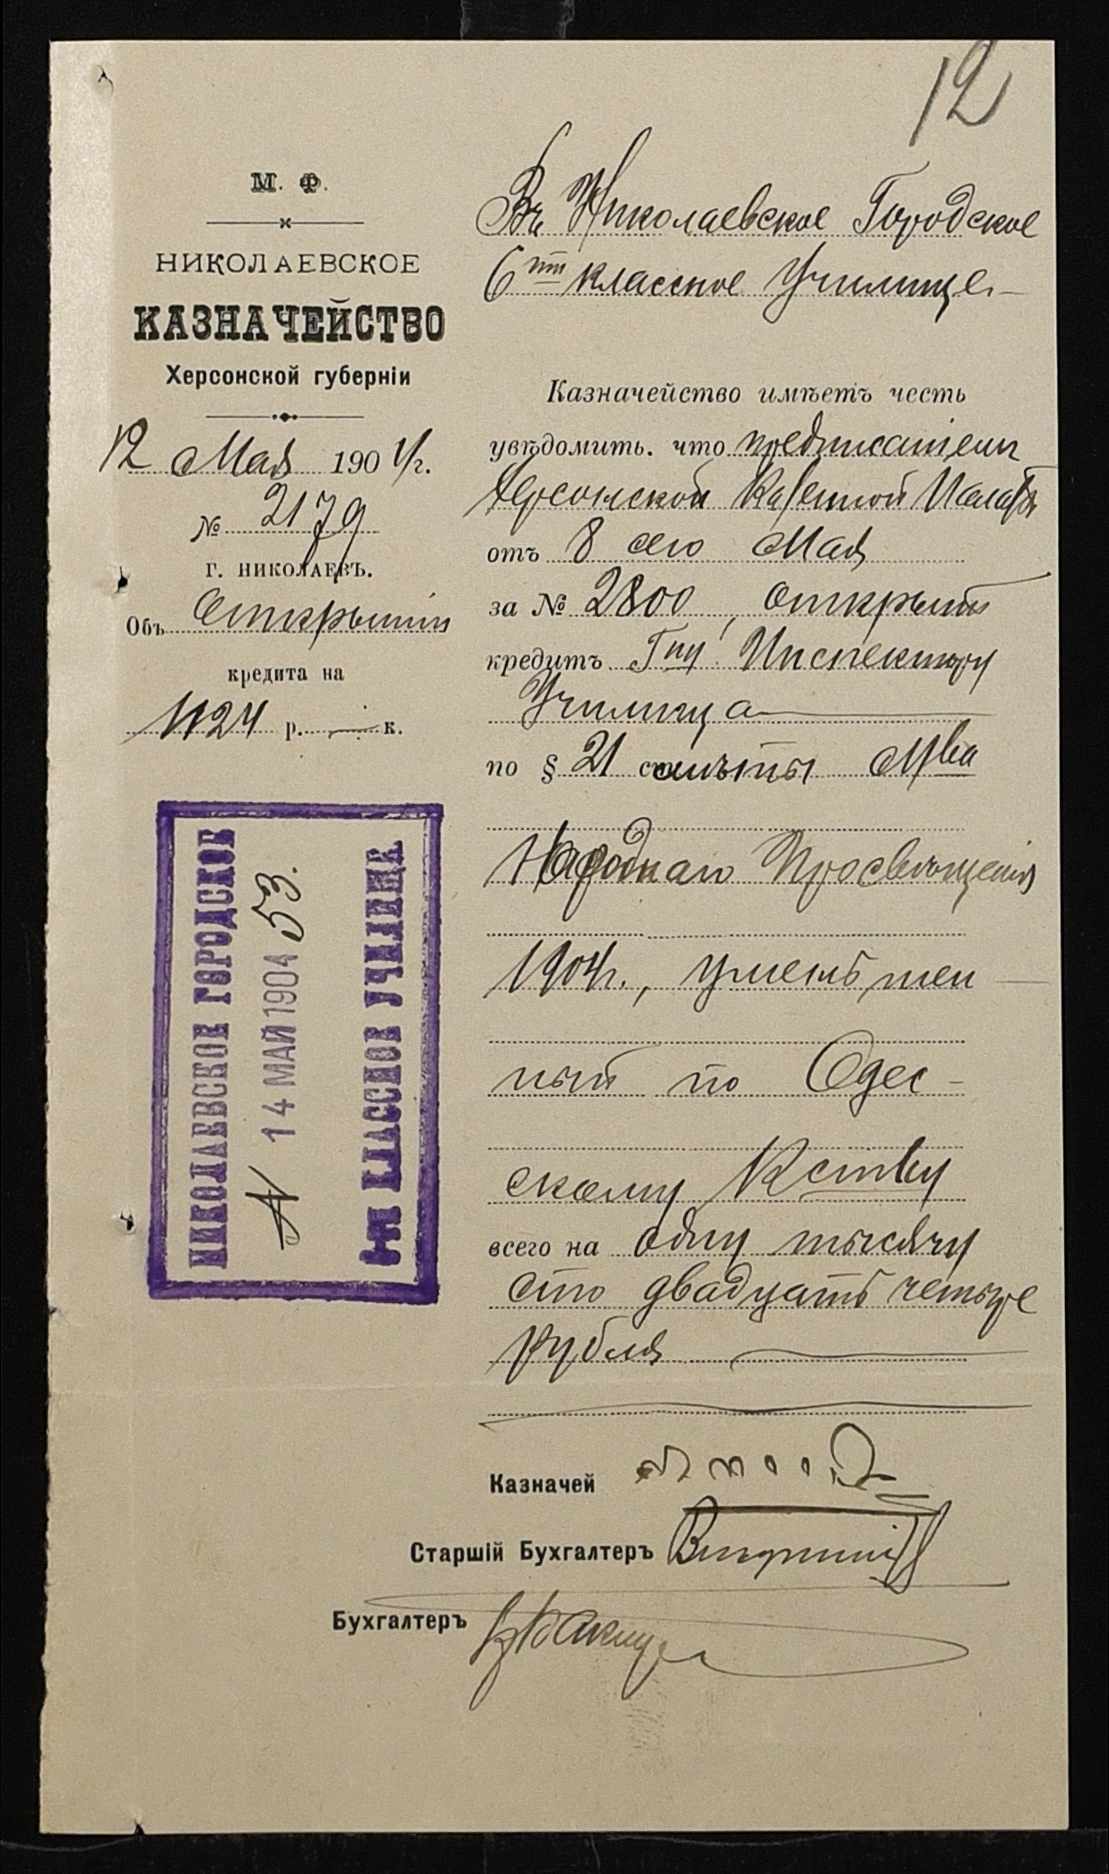 12
М. Ф.
НИКОЛАЕВСКОЕ
КАЗНАЧЕЙСТВО
Херсонской губерніи
12 Мая 1904 г.
№ 2179
Г. НИКОЛАЕВЪ.
Объ открытіи
кредита на
1124 р. — к.
НИКОЛАЕВСКОЕ ГОРОДСКОЕ
14 МАЙ 1904 53.
6-ти КЛАССНОЕ УЧИЛИЩЕ
Въ Николаевское Городское
6ти классное Училище.
Казначейство имѣетъ честь
увѣдомить, что предписаніемъ
Херсонской Казенной Палаты
отъ 8 сего Мая
за № 2800, открытъ
кредитъ Гну Инспектору
Училища
по § 21 смѣты Мва
Народнаго Просвѣщенія
1904 г., уменьшен
ный по Одес-
скому Кству
всего на одну тысячу
сто двадцать четыре
рубля
Казначей
Старшій Бухгалтеръ
Бухгалтеръ